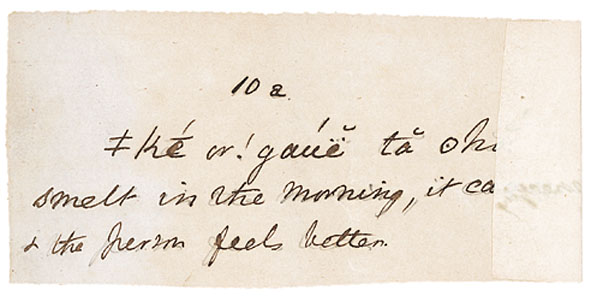 10 a
ǂké or ! gaúë̆ tă ʘhi
smelt in the morning, it ca
& the person feels better.